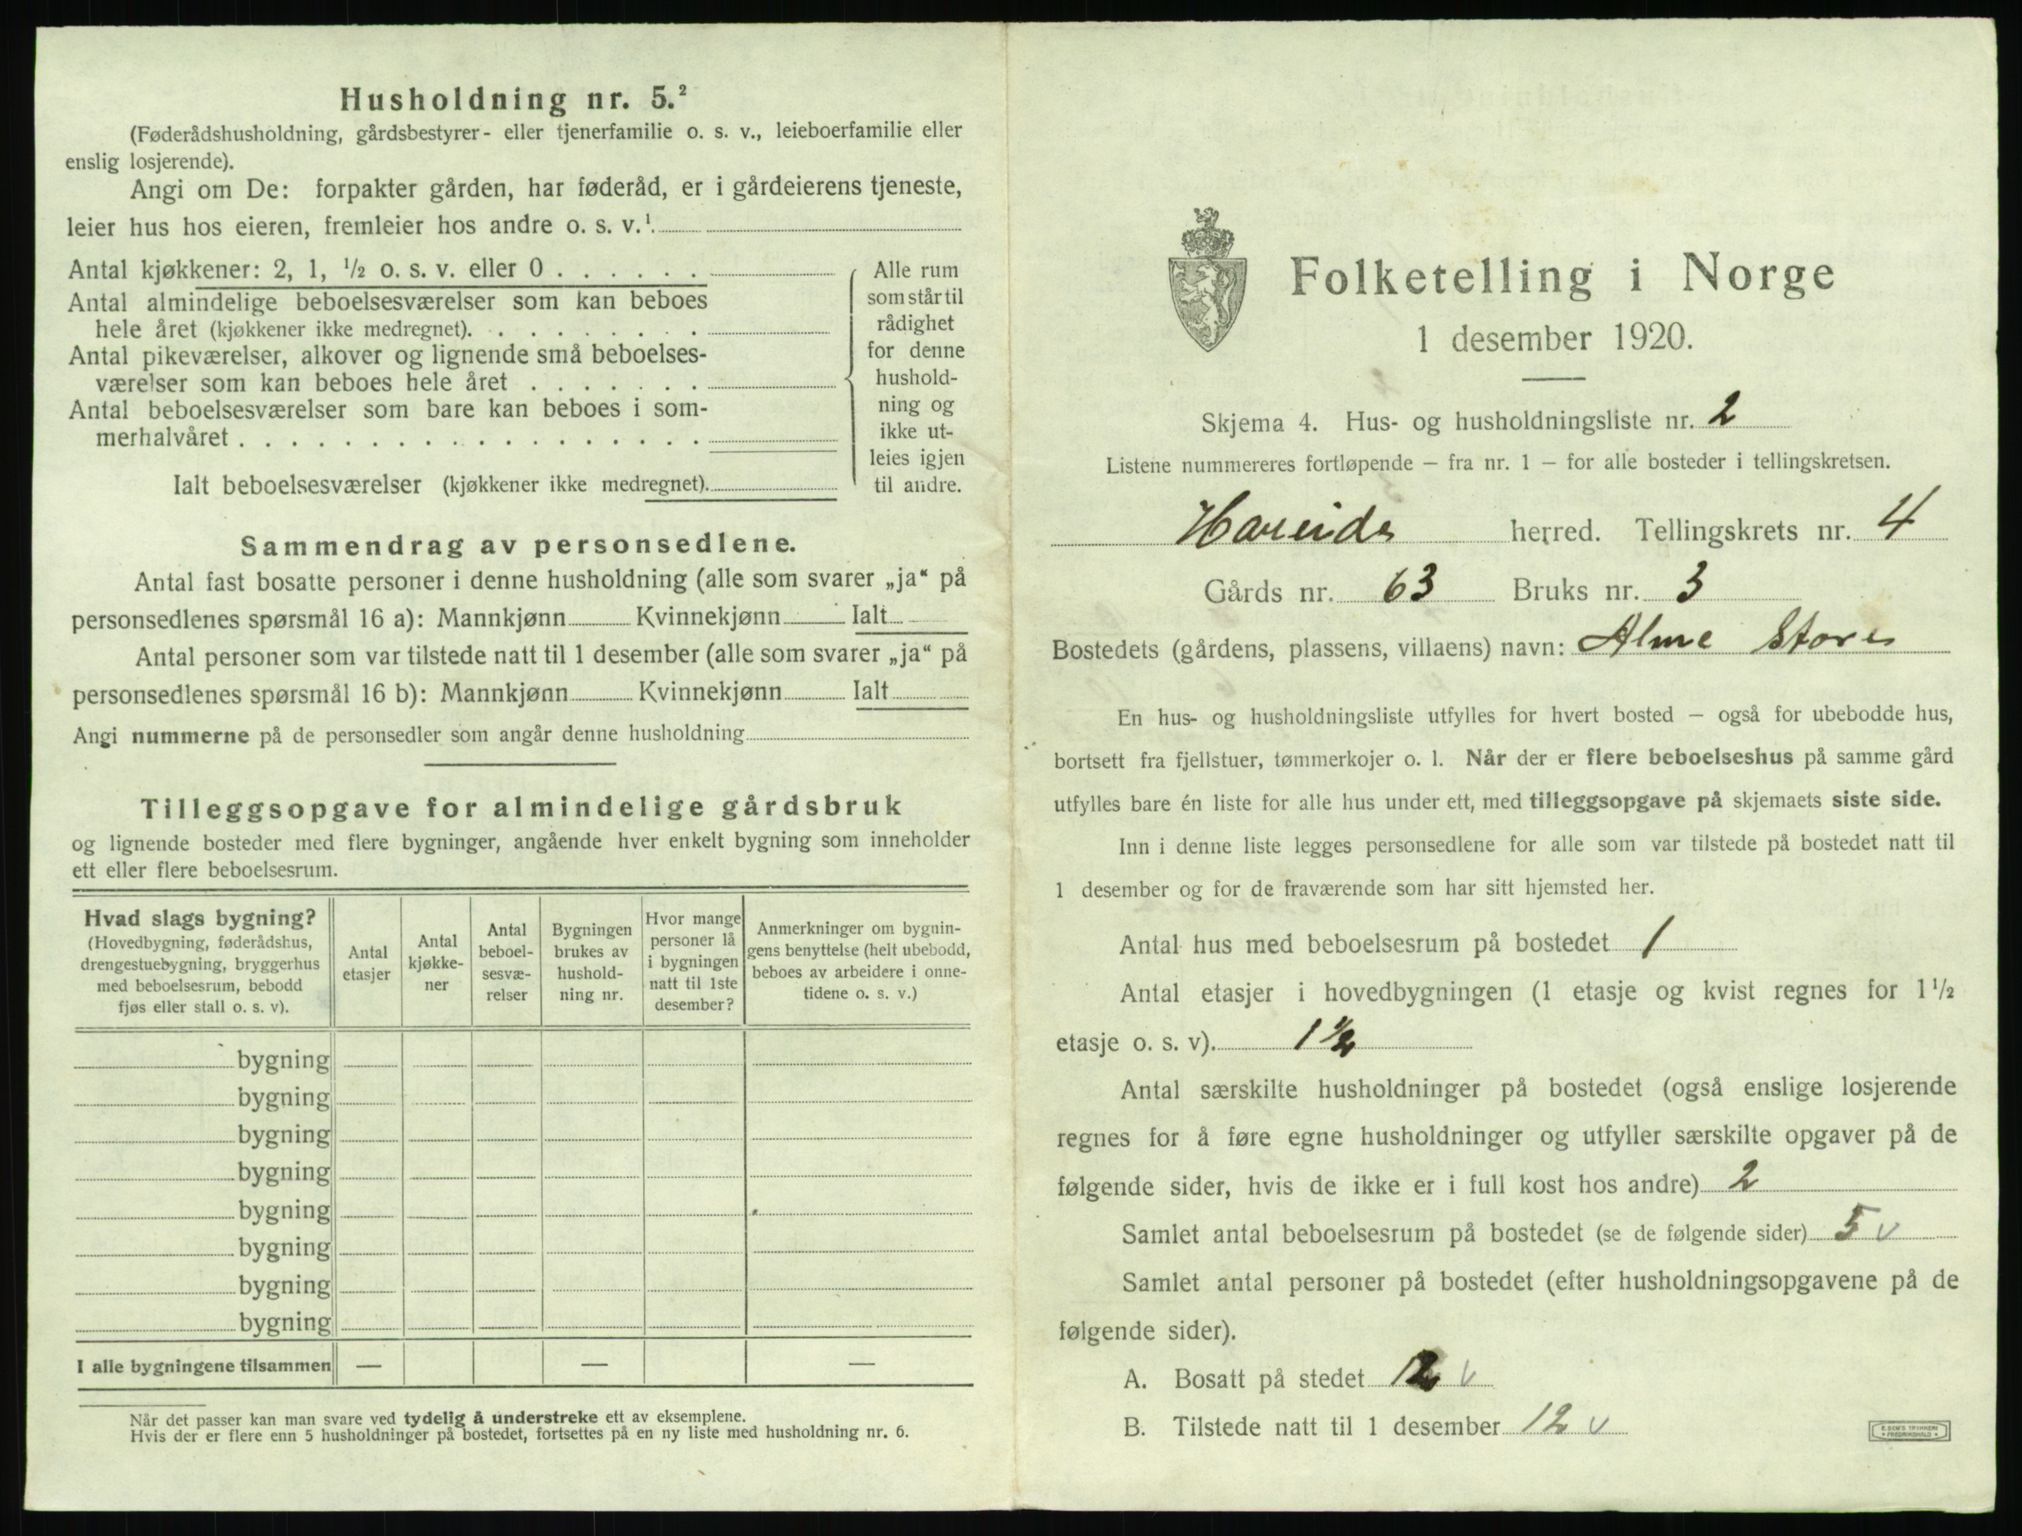 Husholdning nr. 5.²
(Føderådshusholdning, gårdsbestyrer- eller tjenerfamilie o. s. v., leieboerfamilie eller
enslig losjerende).
Angi om De: forpakter gården, har føderåd, er i gårdeierens tjeneste,
leier hus hos eieren, fremleier hos andre o. s. v.¹
Antal kjøkkener: 2, 1, ½ o. s. v. eller 0
Antal almindelige beboelsesværelser som kan beboes
hele året (kjøkkener ikke medregnet).
Antal pikeværelser, alkover og lignende små beboelses-
værelser som kan beboes hele året
Antal beboelsesværelser som bare kan beboes i som-
merhalvåret
Ialt beboelsesværelser (kjøkkener ikke medregnet).
Alle rum
som står til
rådighet
for denne
hushold-
ning og
ikke ut-
leies igjen
til andre.
Sammendrag av personsedlene.
Antal fast bosatte personer i denne husholdning (alle som svarer „ja“ på
personsedlenes spørsmål 16 a): Mannkjønn Kvinnekjønn Ialt
Antal personer som var tilstede natt til 1 desember (alle som svarer „ja“ på
personsedlenes spørsmål 16 b): Mannkjønn Kvinnekjønn Ialt
Angi nummerne på de personsedler som angår denne husholdning
Tilleggsopgave for almindelige gårdsbruk
og lignende bosteder med flere bygninger, angående hver enkelt bygning som inneholder
ett eller flere beboelsesrum.
Hvad slags bygning?
(Hovedbygning, føderådshus,
drengestuebygning, bryggerhus
med beboelsesrum, bebodd
fjøs eller stall o. s. v).
Antal
etasjer
Antal
kjøkke-
ner
Antal
beboel-
sesvæ-
relser
Bygningen
brukes av
hushold-
ning nr.
Hvor mange
personer lå
i bygningen
natt til 1ste
desember?
Anmerkninger om bygnin-
gens benyttelse (helt ubebodd,
beboes av arbeidere i onne-
tidene o. s. v.)
bygning
bygning
bygning
bygning
bygning
bygning
bygning
bygning
I alle bygningene tilsammen — — —
Når det passer kan man svare ved tydelig å understreke ett av eksemplene.
Hvis der er flere enn 5 husholdninger på bostedet, fortsettes på en ny liste med husholdning nr. 6.
Folketelling i Norge
1 desember 1920.
Skjema 4. Hus- og husholdningsliste nr. 2
Listene nummereres fortløpende – fra nr. 1 – for alle bosteder i tellingskretsen.
Hareide herred. Tellingskrets nr. 4
Gårds nr. 63 Bruks nr. 3
Bostedets (gårdens, plassens, villaens) navn: Alme Store
En hus- og husholdningsliste utfylles for hvert bosted – også for ubebodde hus,
bortsett fra fjellstuer, tømmerkojer o. l. Når der er flere beboelseshus på samme gård
utfylles bare én liste for alle hus under ett, med tilleggsopgave på skjemaets siste side.
Inn i denne liste legges personsedlene for alle som var tilstede på bostedet natt til
1 desember og for de fraværende som har sitt hjemsted her.
Antal hus med beboelsesrum på bostedet 1
Antal etasjer i hovedbygningen (1 etasje og kvist regnes for 1½
etasje o. s. v). 1½
Antal særskilte husholdninger på bostedet (også enslige losjerende
regnes for å føre egne husholdninger og utfyller særskilte opgaver på de
følgende sider, hvis de ikke er i full kost hos andre) 2
Samlet antal beboelsesrum på bostedet (se de følgende sider) 5 v
Samlet antal personer på bostedet (efter husholdningsopgavene på de
følgende sider).
A. Bosatt på stedet 12 v
B. Tilstede natt til 1 desember 12 v